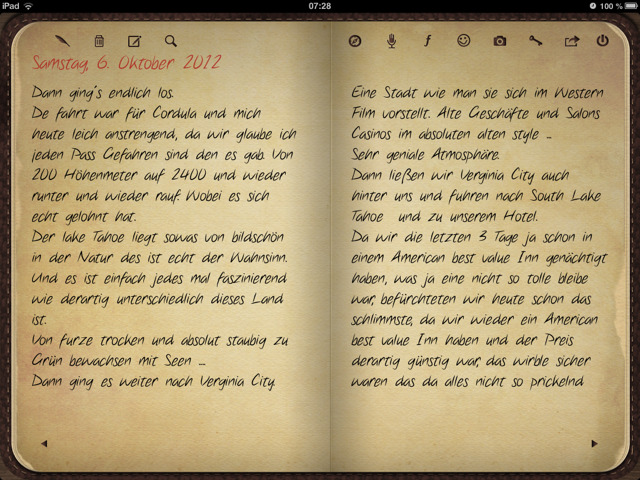 iPad
07:28
100 %
Samstag, 6. Oktober 2012
Dann ging's endlich los.
De fahrt war für Cordula und mich
heute leich anstrengend, da wir glaube ich
jeden Pass Gefahren sind den es gab. Von
200 Höhenmeter auf 2400 und wieder
runter und wieder rauf. Wobei es sich
echt gelohnt hat.
Der lake Tahoe liegt sowas von bildschön
in der Natur des ist echt der Wahnsinn.
Und es ist einfach jedes mal faszinierend
wie derartig unterschiedlich dieses Land
ist.
Von furze trocken und absolut staubig zu
Grün bewachsen mit Seen ...
Dann ging es weiter nach Verginia City.
Eine Stadt wie man sie sich im Western
Film vorstellt. Alte Geschäfte und Salons
Casinos im absoluten alten style ...
Sehr geniale Atmosphäre.
Dann ließen wir Verginia City auch
hinter uns und fuhren nach South Lake
Tahoe und zu unserem Hotel.
Da wir die letzten 3 Tage ja schon in
einem American best value Inn genächtigt
haben, was ja eine nicht so tolle bleibe
war, befürchteten wir heute schon das
schlimmste, da wir wieder ein American
best value Inn haben und der Preis
derartig günstig war, das wirble sicher
waren das da alles nicht so prickelnd